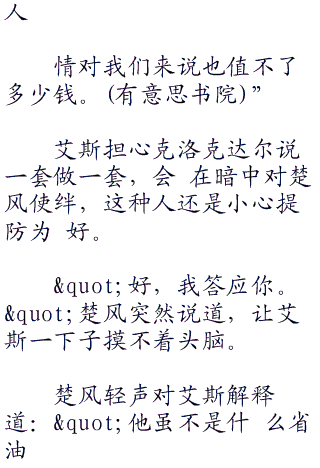 人
情对我们来说也值不了
多少钱。(有意思书院)”
艾斯担心克洛克达尔说
一套做一套，会 在暗中对楚
风使绊，这种人还是小心提
防为 好。
&quot;好，我答应你。
&quot;楚风突然说道，让艾
斯一下子摸不着头脑。
楚风轻声对艾斯解释
道：&quot;他虽不是什 么省
油